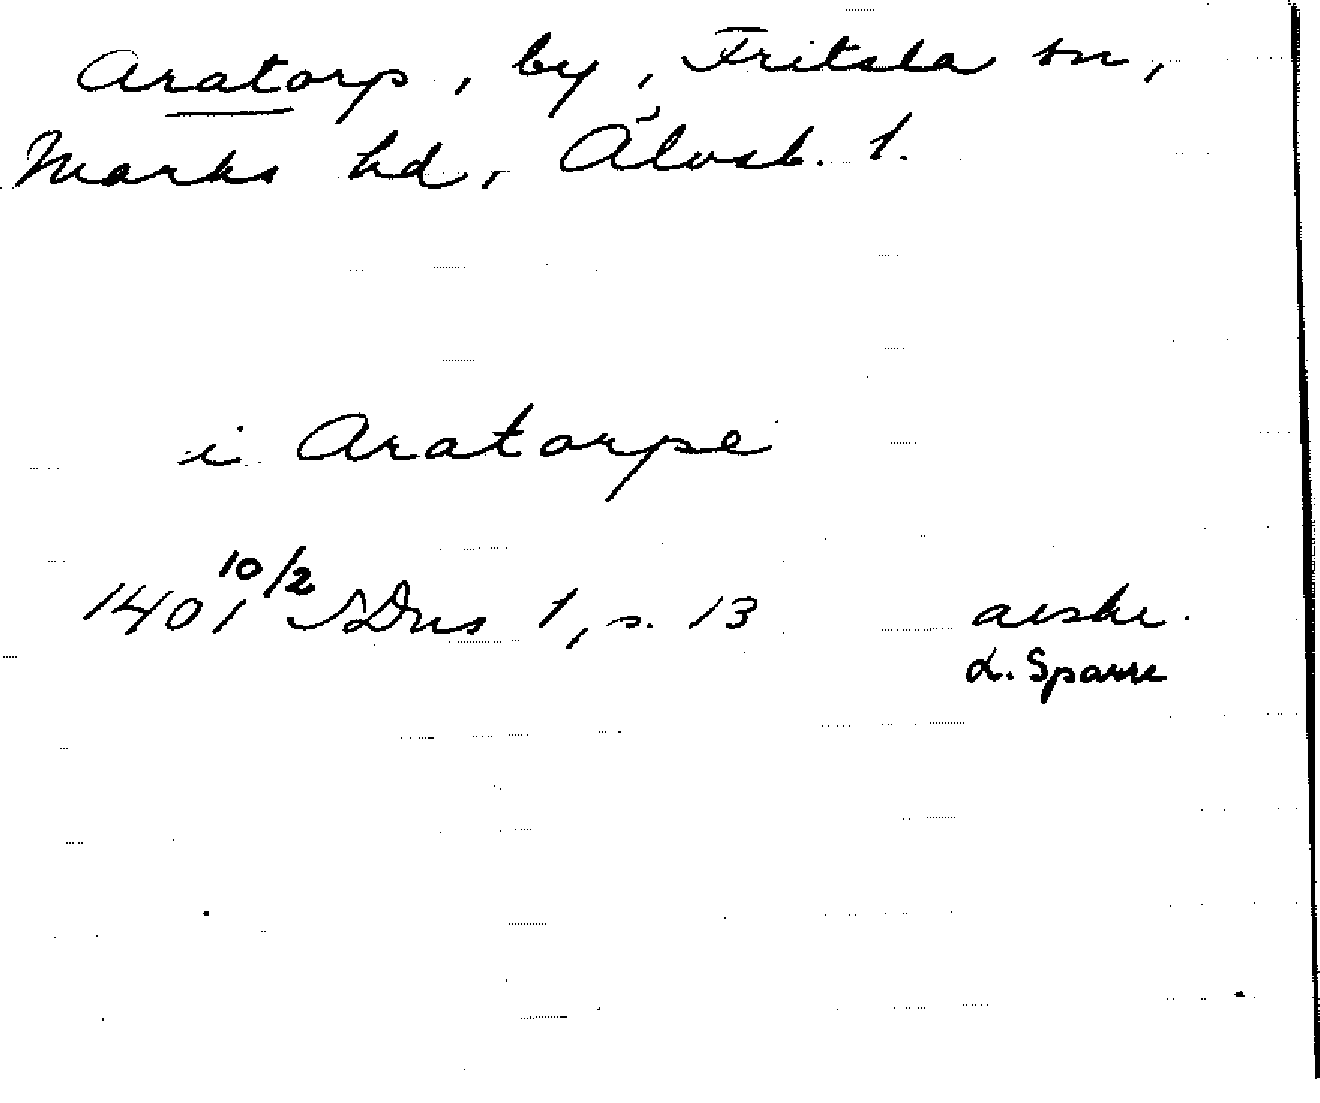 Aratorp, by, Fritsla sn,
Marks hd, Älvsb. l.
i Aratorpe
1401 10/2 SDns 1, s. 13 avskr.
L. Sparre